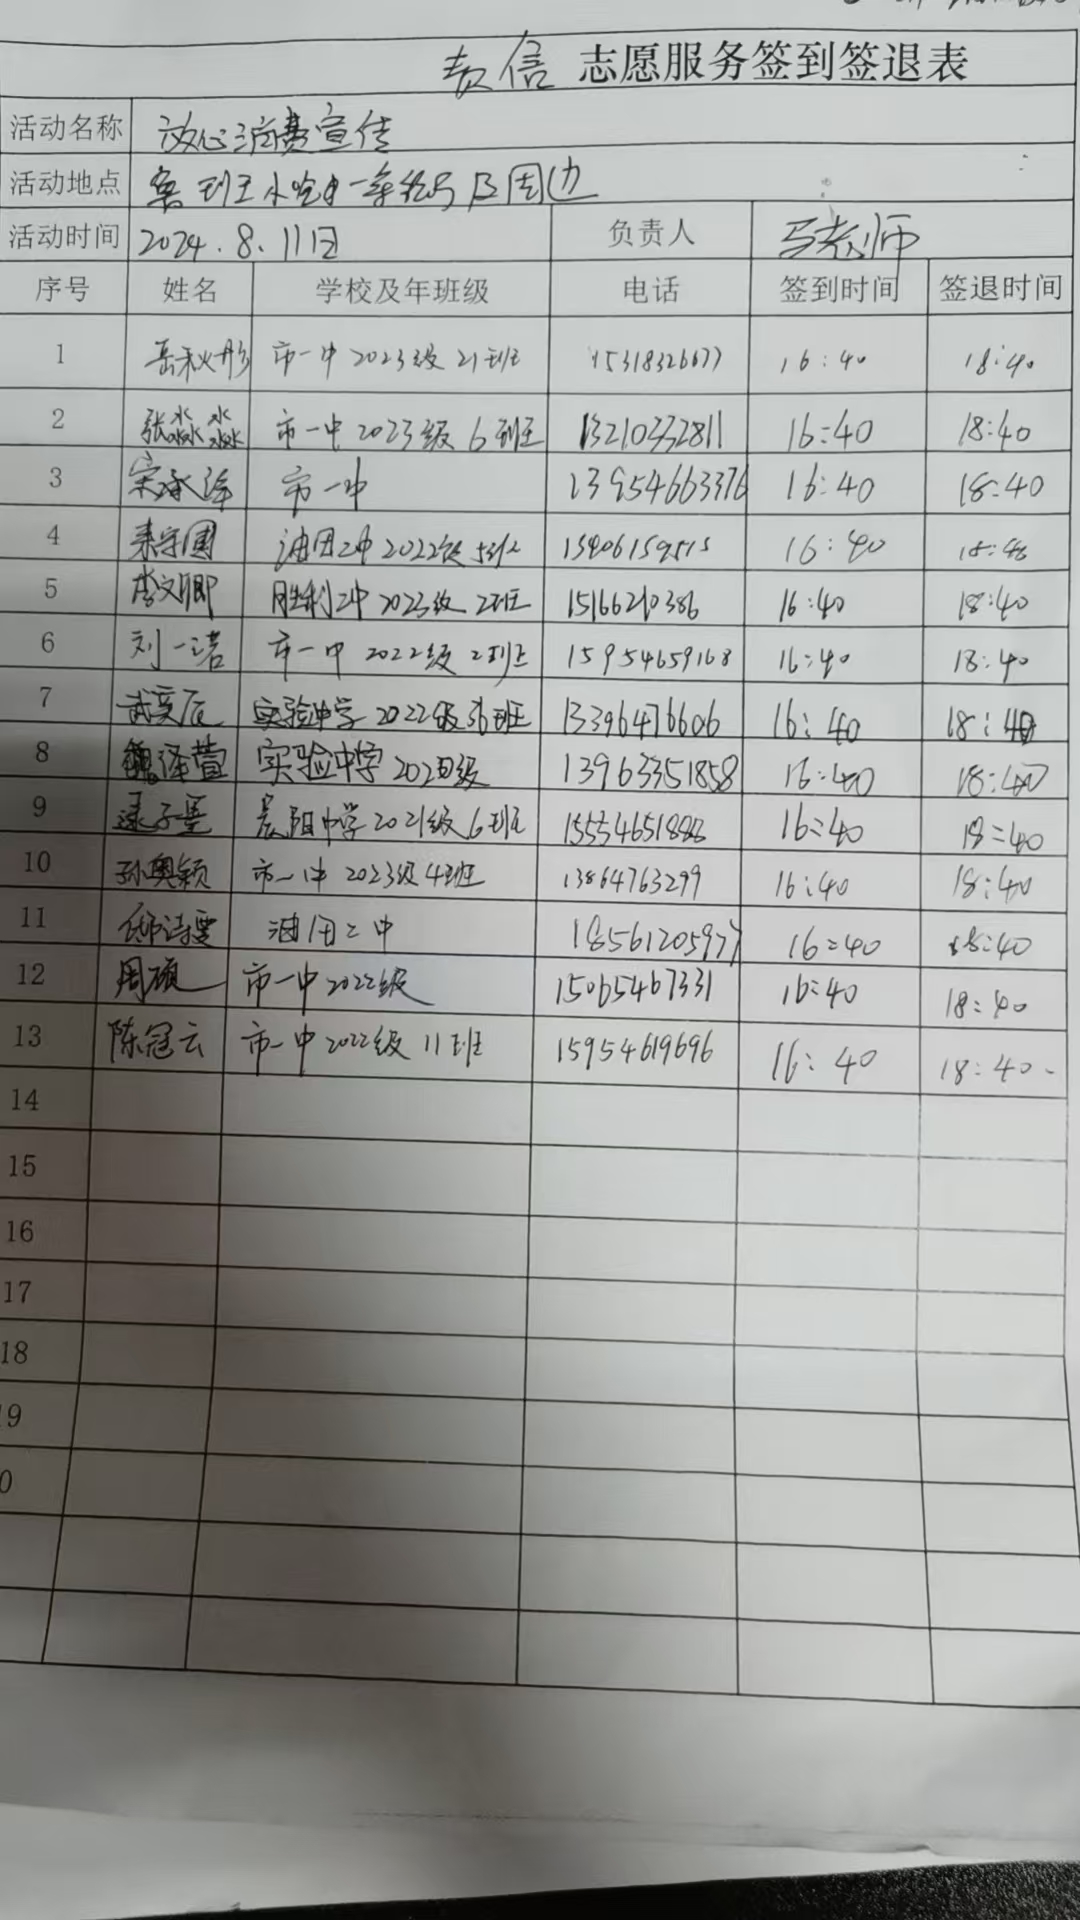 志愿服务签到签退表
活动名称 放心消费宣传
活动地点 及周边
活动时间 2024.8.11日 负责人 马老师
序号 姓名 学校及年班级 电话 签到时间 签退时间
1 岳秋彤 市一中2023级21班 15318326677 16:40 18:40
2 张淼淼 市一中2023级6班 13210332811 16:40 18:40
3 宋承泽 市一中 13954663376 16:40 18:40
4 油田二中2022级5班 16:40 18:40
5 李文卿 胜利二中2023级2班 16:40 18:40
6 刘一诺 市一中2022级2班 15954659168 16:40 18:40
7 武奕辰 实验中学2022级36班 13396476606 16:40 18:40
8 魏泽萱 实验中学 13963351858 16:40 18:40
9 景阳中学2021级6班 16:40 18:40
10 孙奥颖 市一中2023级4班 13864763299 16:40 18:40
11 油田二中 18561205977 16:40 18:40
12 周硕 市一中2022级 15065467331 16:40 18:40
13 陈冠云 市一中2022级11班 15954619696 16:40 18:40
14
15
16
17
18
19
0